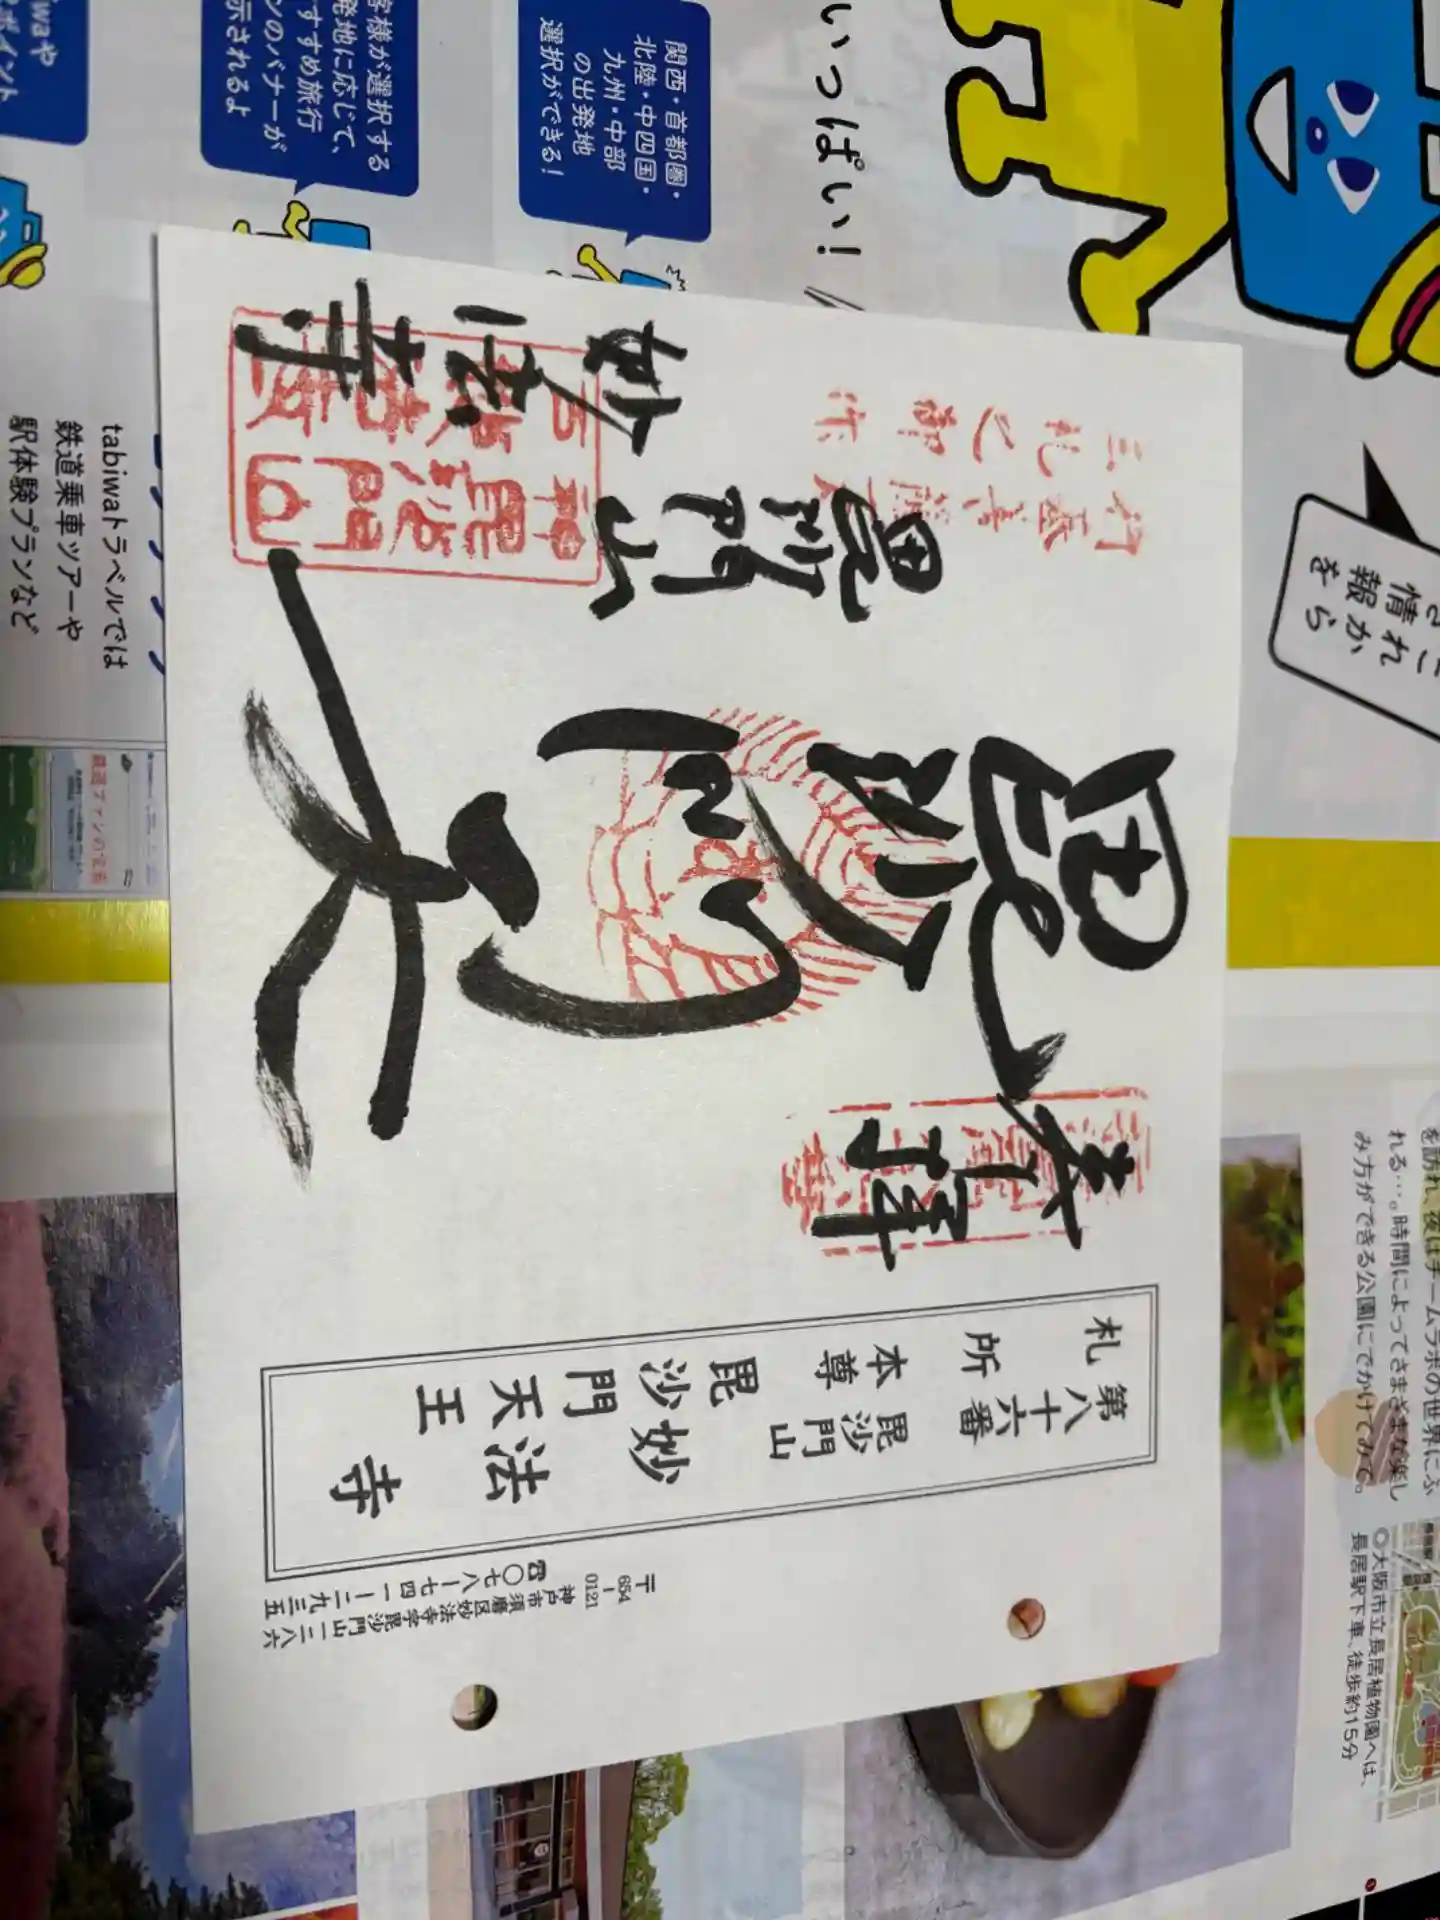 奉拝
毘沙門天
毘沙門山
妙法寺
行基菩薩
三礼之御作
神戸
毘沙門山
札所
第八十六番
本尊
毘沙門山
毘沙門天王
妙法寺
〒654-0121
神戸市須磨区妙法寺字毘沙門山一二八六
☎〇七八-七四一-二九三五
いっぱい!
関西・首都圏・
北陸・中四国・
九州・中部
の出発地
選択ができる!
客様が選択する
発地に応じて、
すすめ旅行
ンのバナーが
示されるよ
iwaや
ポイント
tabiwaトラベルでは
鉄道乗車ツアーや
駅体験プランなど
これから
情報を
鉄道ファンの宝箱
を訪れ、夜はチームラボの世界にふ
れる…。時間によってさまざまな楽し
み方ができる公園にでかけてみて。
◎大阪市立長居植物園へは、
長居駅下車、徒歩約15分